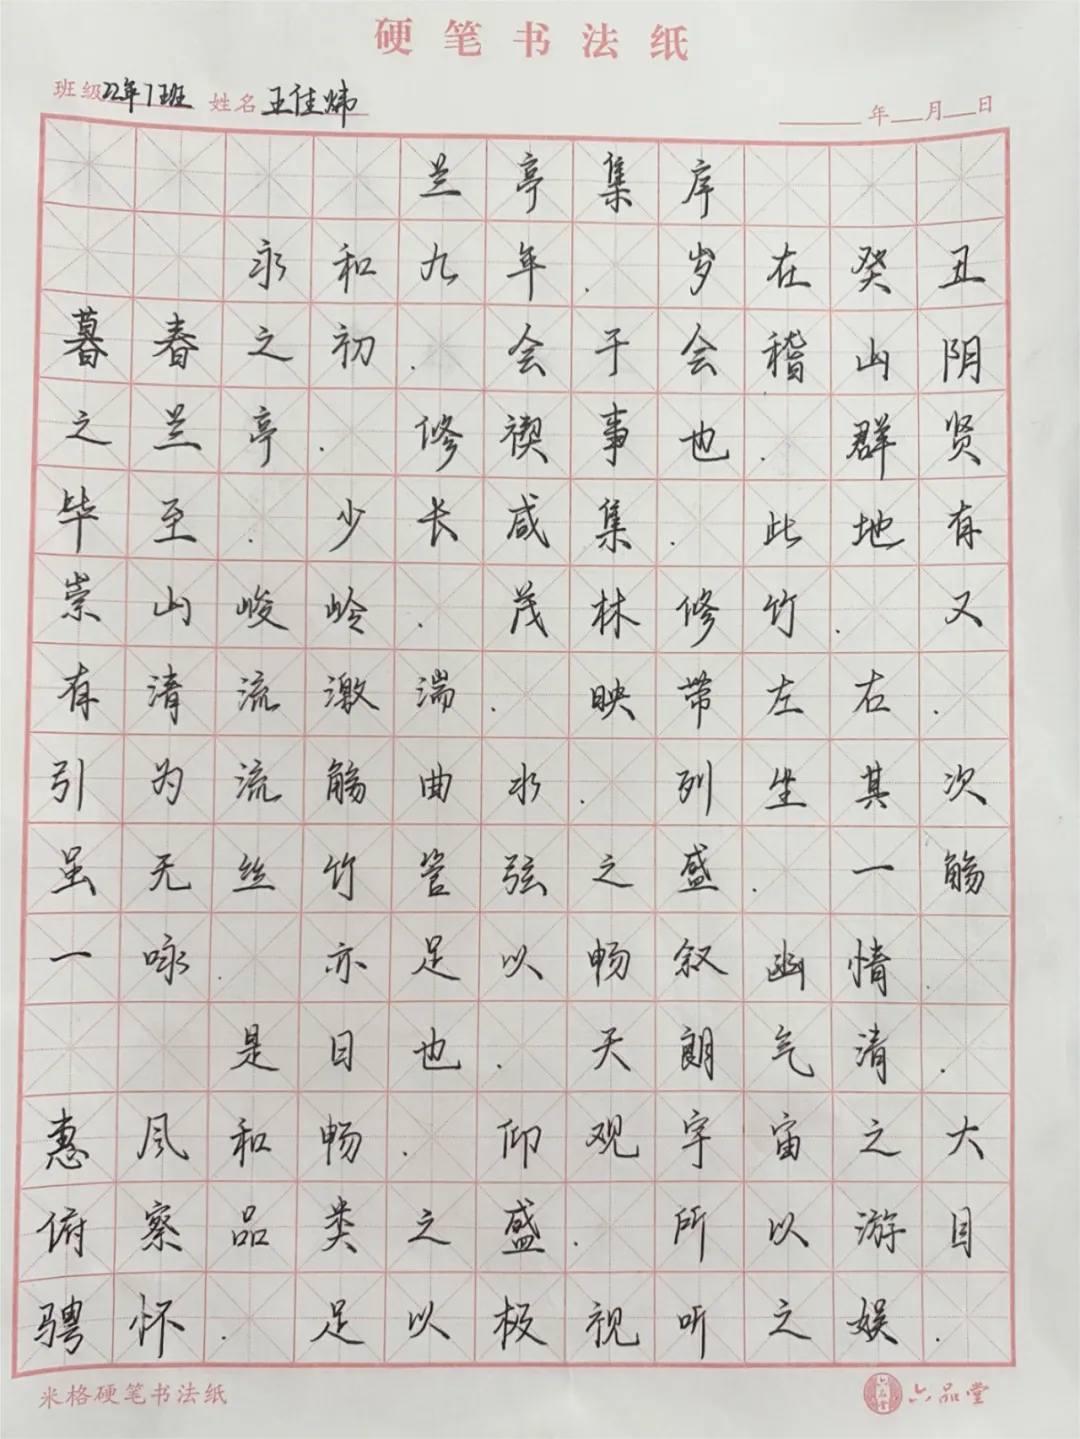 硬笔书法纸
班级22年1班 姓名王佳炜 年 月 日
兰亭集序
永和九年.岁在癸丑
暮春之初.会于会稽山阴
之兰亭.修禊事也.群贤
毕至.少长咸集.此地有
崇山峻岭.茂林修竹.又
有清流激湍.映带左右.
引为流觞曲水.列坐其次
虽无丝竹管弦之盛.一觞
一咏.亦足以畅叙幽情.
是日也.天朗气清.
惠风和畅.仰观宇宙之大
俯察品类之盛.所以游目
骋怀.足以极视听之娱.
米格硬笔书法纸 六品堂 六品堂